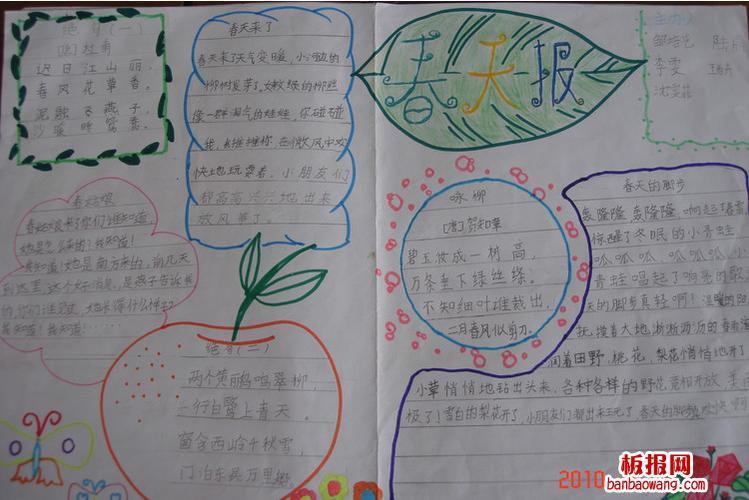 绝句(一)
[唐]杜甫
迟日江山丽，
春风花草香。
泥融飞燕子，
沙暖睡鸳鸯。
春天来了
春天来了天气变暖，小河边的
柳树发芽了。嫩绿的柳
像一群淘气的娃娃，你碰碰
我，我推推你，在微风中欢
快地玩耍着，小朋友们
都高高兴兴地出来
放风筝了。
春天报
主办人
李雯
春姑娘
春姑娘来了你们谁知道
她是怎么来的？我知道！
我知道！她是南方来的，前几天
到这里，这个好消息，是燕子告诉我
的，你们谁知道，她长得什么样子？
我知道！我知道！……
咏柳
[唐]贺知章
碧玉妆成一树高，
万条垂下绿丝绦。
不知细叶谁裁出，
二月春风似剪刀。
春天的脚步
轰隆隆，轰隆隆，响起了春雷
惊醒了冬眠的小青蛙
呱呱，呱呱，呱呱
青蛙唱起了响亮的歌
天的脚步真轻啊！温暖的阳
抚摸着大地，淅淅沥沥的春雨滋
润着田野，桃花，梨花悄悄地开了
小草悄悄地钻出头来，各种各样的野花竞相开放，美丽
极了！雪白的梨花开了，小朋友们都出来玩了，春天的脚步
绝句(二)
两个黄鹂鸣翠柳，
一行白鹭上青天。
窗含西岭千秋雪，
门泊东吴万里船。
2010
板报网
banbaowang.com